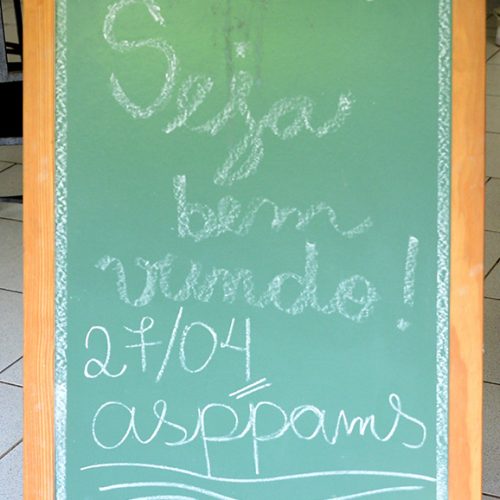 Seja
bem
vindo!
27/04
asppams